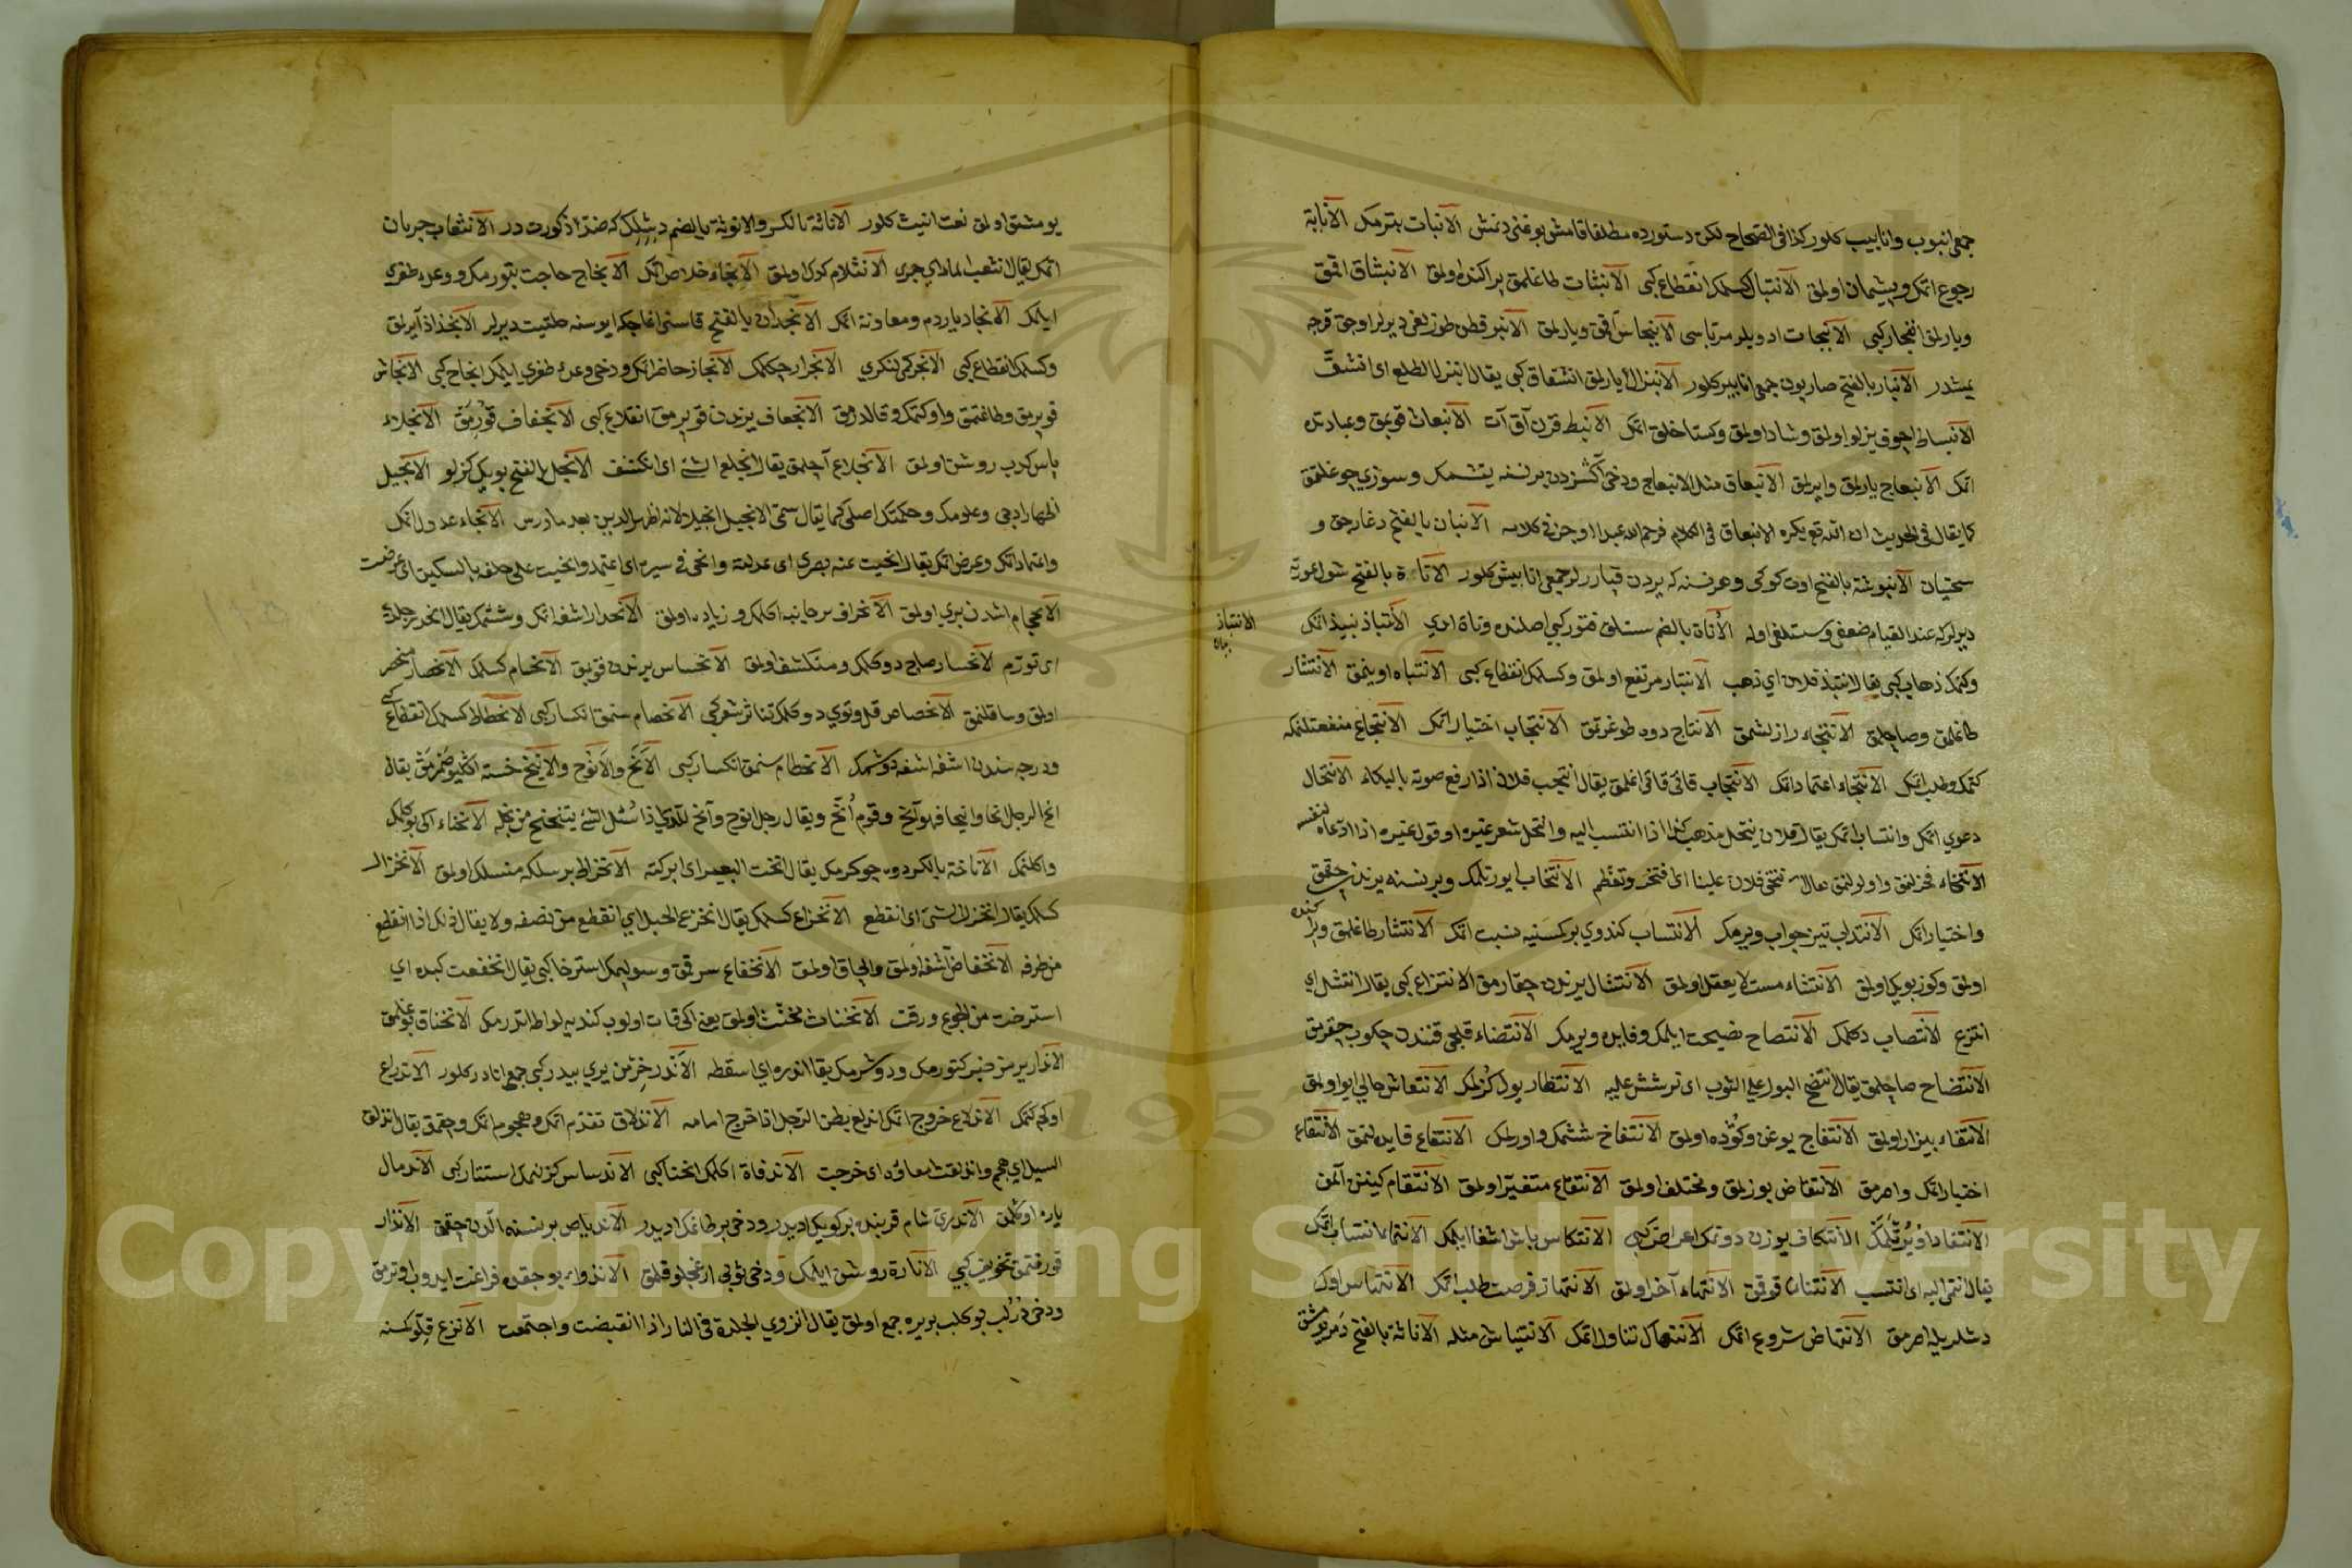 جمعى انبوب وانابيب كلور كذا فى الصحاح لكن دستورده مطلقا قامش بوغنى دنمش الانبات بترمك الانابة
رجوع اتمك وپشيمان اولمق الانتبال كسلمك انقطاع كبى الانبثات طاغلمق پراكنده اولمق الانبثاق اقمق
ويارلمق انفجار كبى الانبجات ادويلر مرباسى الانبجاس آقمق ويارلمق الانبر قطن طوزلغى ديرلر اوجق قرجه
يمشدر الانبار بالفتح صاريون جمعى انابير كلور الانبزال يارلمق انشقاق كبى يقال انبزل الطلع اى انشق
الانبساط اچوق يزلو اولمق وشاد اولمق وكستاخلق اتمك الانبط قرن آق آت الانبعاث قوپمق وعبادته
اتمك الانبعاج يارلمق وايرلمق الانبعاق مثل الانبعاج ودخى آكسزدن برنسنه يتشمك وسوزى چوغلتمق
كما يقال فى الحديث ان الله تع يكره الانبعاق فى الكلام فرحم الله عبدا اوجز فى كلامه الانبان بالفتح دغارجق و
سختيان الانبوشة بالفتح اوت كوكى وهر نسنه كه يردن قپارلر جمعى انابيش كلور الاناة بالفتح شول عورته
ديرلر كه عند القيام ضعفى وسستلغى اوله الأناة بالضم سستلق فتور كبى اصلنده وناة ايدى الانتباذ نبيذ اتمك
الانتباذ
وكتمك ذهاب كبى يقال انتبذ فلان اي ذهب الانتبار مرتفع اولمق وكسلمك انقطاع كبى الانتباه اويانمق الانتثار
طاغلمق وصاچلمق الانتجاء رازلشمق الانتاج دوه طوغرتمق الانتجاب اختيار اتمك الانتجاع منفعتلنمكه
كتمك وطلب اتمك الانتحاء اعتماد اتمك الانتحاب قاتى قاتى اغلمق يقال انتحب فلان اذا رفع صوته بالبكاء الانتحال
دعوي اتمك وانتساب اتمك يقال فلان ينتحل مذهب كذا اذا انتسب اليه وانتحل شعر غيره او قول غيره اذا ادعاه لنفسه
الانتخاء فخرلنمق واولولنمق يقال انتخى فلان علينا اى افتخر وتعظم الانتخاب ايورتلمك وبر نسنه يرندن چقمق
واختيار اتمك الانتداب تيز جواب ويرمك الانتساب كندوي بركسنيه نسبت اتمك الانتشار طاغلمق وپراكنده
اولمق وكوز بويك اولمق الانتشاء مست لا يعقل اولمق الانتشال يرندن چقارمق الانتزاع كبى يقال انتشل اي
انتزع الانتصاب دكلمك الانتصاح نصيحت ايلمك وفايده ويرمك الانتضاء قلجى قنندن چكوب چقرمق
الانتضاح صاچلمق يقال انتضح البول على الثوب اى ترشش عليه الانتظار يول كزلمك الانتعاش حالي ايو اولمق
الانتفاء بيزار اولمق الانتفاج يوغن وكوده اولمق الانتفاخ ششمك واورلمك الانتفاع فايده لنمق الانتقاء
اختيار اتمك واصرمق الانتقاض بوزلمق ومختلف اولمق الانتقاع متغير اولمق الانتقام كينن آلمق
الانتكاف يوزن دوتمك اعراض كبى الانتكاس باش اشغا ايلمك الانتماء انتساب اتمك
يقال انتمى اليه اى انتسب الانتنان قوقمق الانتهاء آخر اولمق الانتهاز فرصت طلب اتمك الانتهاس اوك
دشلريله اصرمق الانتهاض شروع اتمك الانتهال تناول اتمك الانتياش مثله الاناثة بالفتح دمر يومشق
يومشق اولمق نعت انيث كلور الاناثة بالكسر والانوثة بالضم دشيلك كه ضد ذكورت در الانثعاب جريان
اتمك يقال انثعب الماء اي جرى الانثلام كدك اولمق الانجاء خلاص اتمك الانجاح حاجت بتورمك ووعده ظفرى
ايلمك الانجاد ياردم ومعاونة اتمك الانجدان بالفتح قاسنى اغاجكه ايوسنه حلتيت ديرلر الانجذاذ آيرلمق
وكسلمك انقطاع كبى الانجر كمى لنكرى الانجرار چكلمك الانجاز حاضر اتمك ودخى وعده ظفرى ايلمك انجاح كبى الانجاش
قوپرمق وطاغتمق واوكتمك وقالدرمق الانجعاف يرندن قوپرمق انقلاع كبى الانجفاف قورمق الانجلاء
پاس كدب روشن اولمق الانجلاع آچلمق يقال انجلع الشئ اى انكشف الانجل بالفتح بويك كوزلو الانجيل
اظهار ايدجى وعلومك وحكمتك اصلى كما يقال سمى الانجيل انجيلا لانه اظهر الدين بعد ما درس الانحاء عدول اتمك
واعتماد اتمك وعرض اتمك يقال انحيت عنه بصرى اى عدلته وانحى فى سيره اى اعتمد وانحيت على حلقه بالسكين اى عرضت
الانحدار اشغه اتمك وششمك يقال انحدر جلده
اى تورم الانحسار صاچ دوكلمك ومنكشف اولمق الانحساس يرندن قوپمق الانحسام كسلمك الانحصار منحصر
اولمق وساقلنمق الانحصاص قل وتوي دوكلمك تناثر شعر كبى الانحصام سنمق انكسار كبى الانحطاط كسلمك انقطاع كبى
ودرجه سندن اشغه اشغه دوشمك الانحطام سنمق انكسار كبى الانح والانوح والانيح خسته اكليو صزمرمق يقال
انح الرجل انحا وانيحا فهو آنح وقوم أنح ويقال رجل انوح وآنح للذى اذا سئل الشئ يتنحنح من بخله الانحناء اكى بوكلمك
واكلنمك الاناخة بالكسر دوه چوكرمك يقال انخت البعير اى ابركته الانخراط بر سلكه منسلك اولمق الانخزال
كسلمك يقال انخزل الشئ اى انقطع الانخزاع كسلمك يقال انخزع الحبل اي انقطع من نصفه ولا يقال ذلك اذا انقطع
من طرفه الانخفاض اشغه اولمق والچاق اولمق الانخفاع سرقمق وسولپمك استرخا كبى يقال انخفعت كبده اي
استرخت من الجوع ورقت الانخناث مخنث اولمق يعنى اكى قات اولوب كنديه لواطه اتدرمك الانخناق بوغلمق
الاندار بر نسنه يى كتورمك ودوشرمك يقال اندره اي اسقطه الاندر خرمن يري بيدر كبى جمعى انادر كلور الاندراع
اوكه كتمك الاندلاع خروج اتمك اندلع بطن الرجل اذا خرج امامه الاندلاق تقدم اتمك وهجوم اتمك وچقمق يقال اندلق
السيل اي هجم واندلقت امعاؤه اى خرجت الاندفاة اكلمك انحنا كبى الاندساس كزلنمك استتار كبى الاندمال
ياره اوكلمق الاندرين شام قربنده بر كويك اديدر ودخى بر طاغك اديدر الاندياص بر نسنه الدن چقمق الانذار
قورقتمق تخويف كبى الانارة روشن ايلمك ودخى ثوبى ارغجلو قلمق
ودخى درلب بوكلب بويره جمع اولمق يقال انزوى الجلدة فى النار اذا انقبضت واجتمعت الانزع